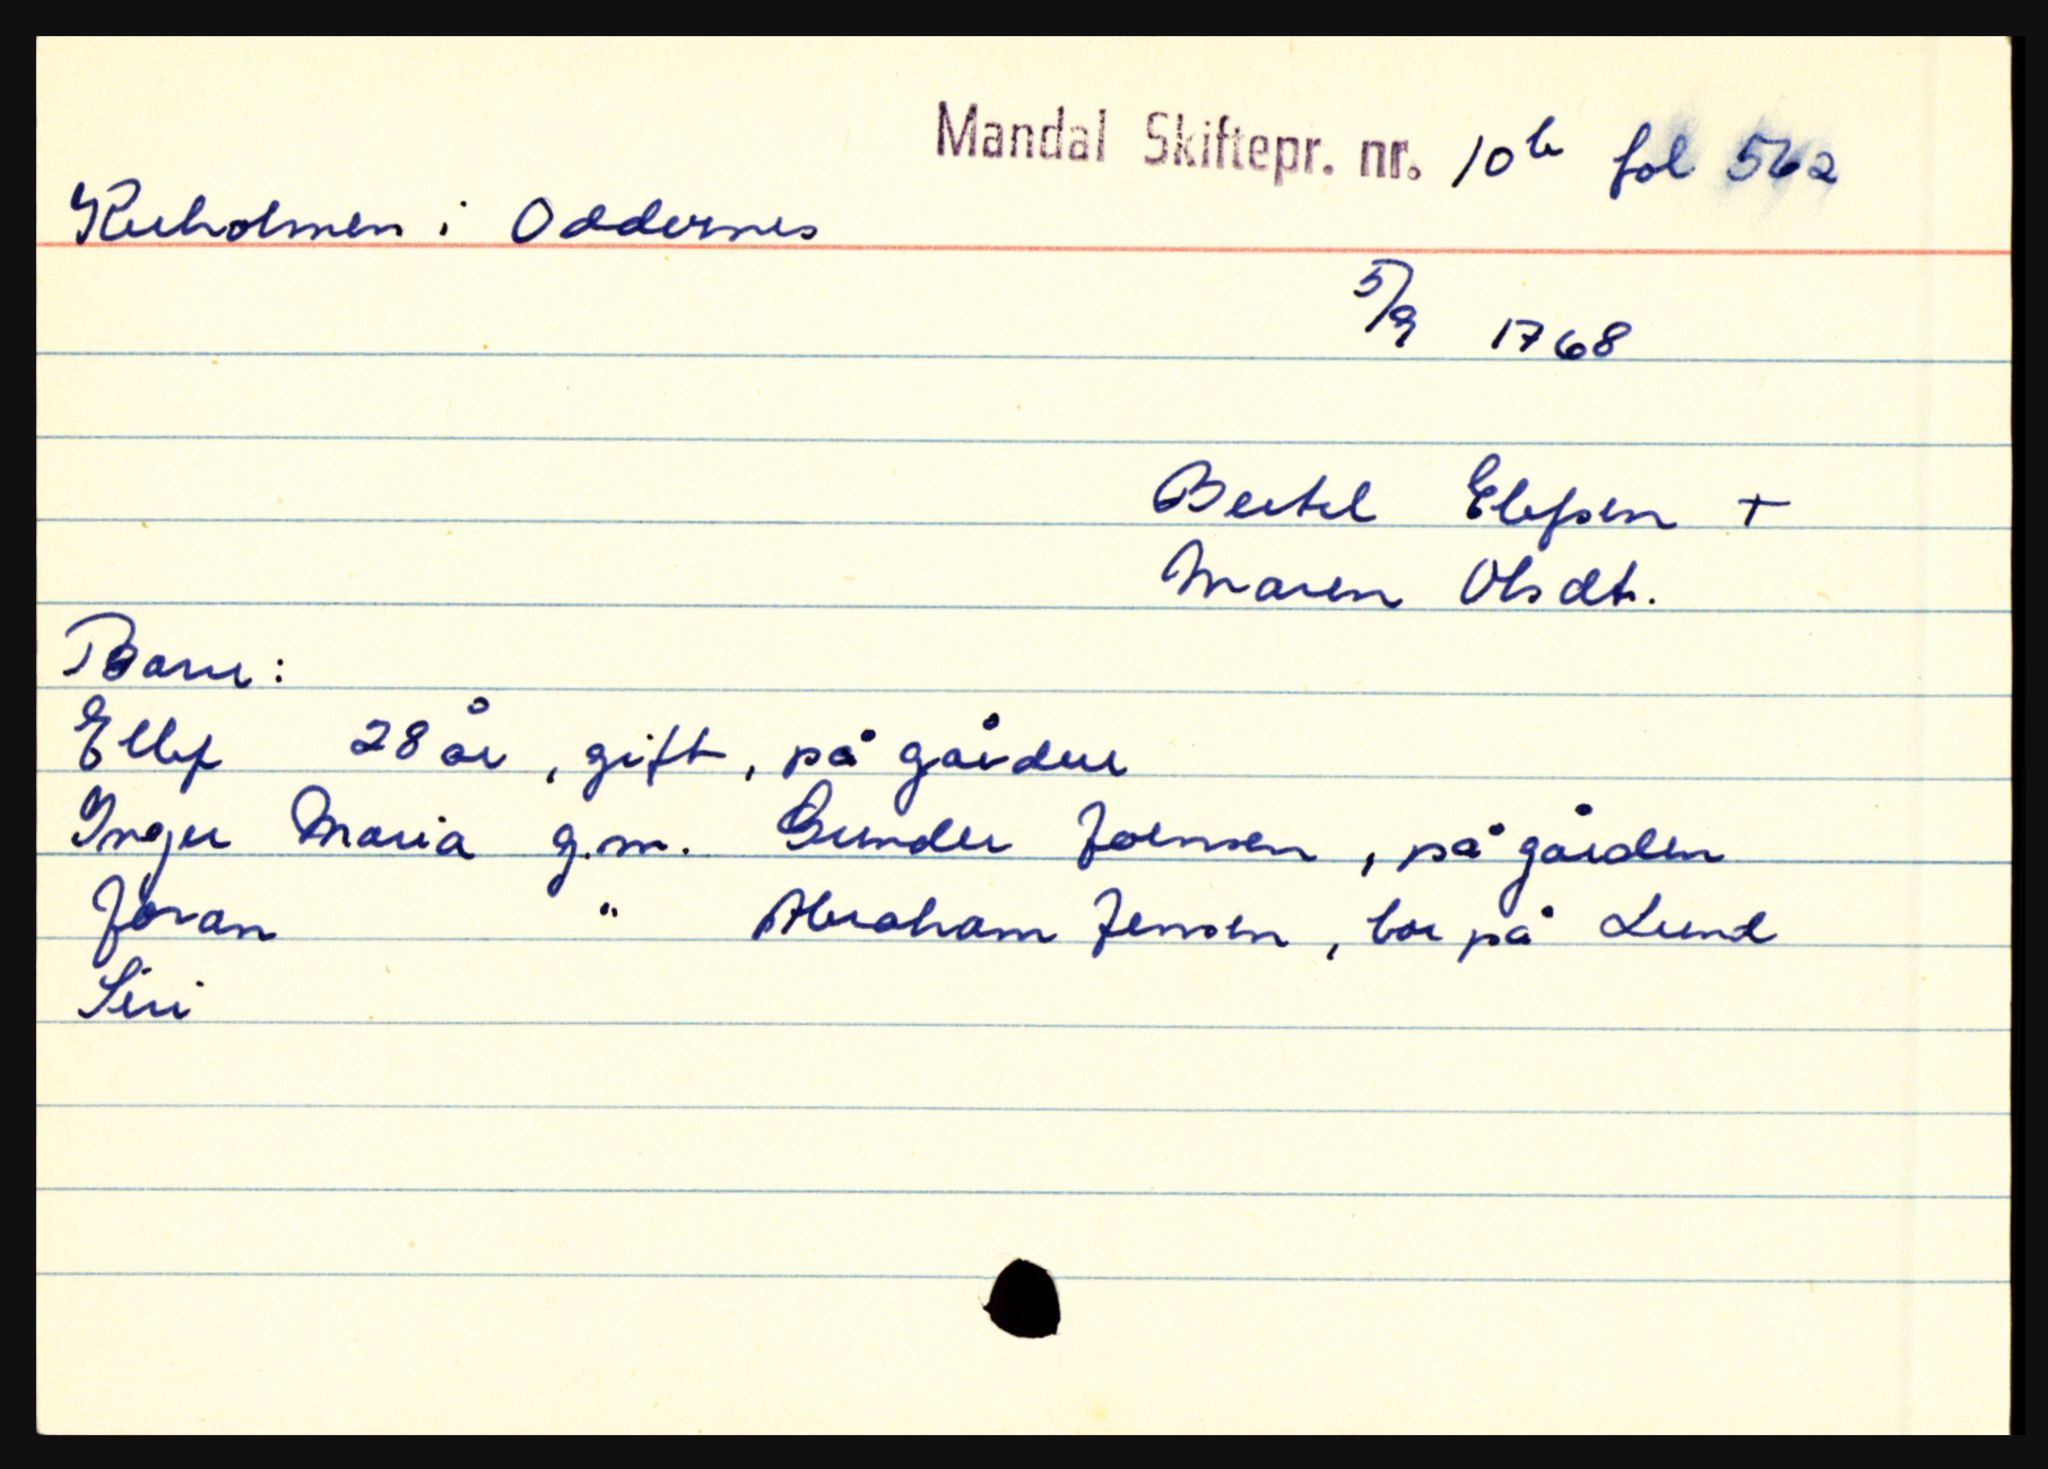 Mandal Skiftepr. nr. 10b fol 562
Kuholmen i Oddernes
5/9 1768
Bertel Elefsen +
Maren Olsdt.
Barn:
Ellef 28 år, gift, på gården
Inger Maria g.m. Gunder Joensen, på gården
Joran " Abraham Jensen, bor på Lund
Siri